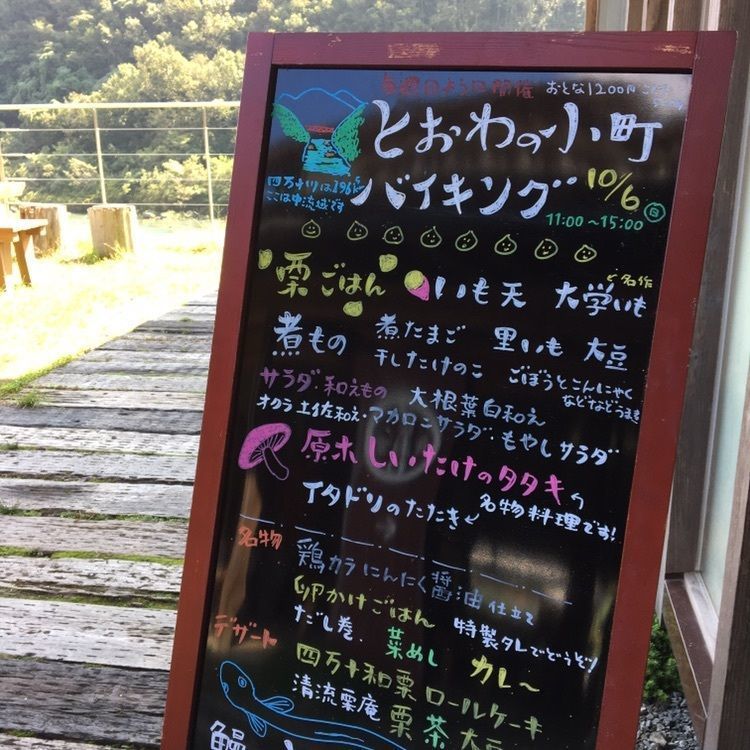 毎週日よう日開催 おとな1200円
とおわの小町
バイキング 10/6 (日)
11:00~15:00
四万十川は196km
ここは中流域です
栗ごはん いも天 大学いも
煮もの 煮たまご 里いも 大豆
干したけのこ ごぼうとこんにゃく
などなどうまき
サラダ・和えもの 大根葉白和え
オクラ土佐和え・マカロニサラダ・もやしサラダ
原木しいたけのタタキ
イタドリのたたき 名物料理です!
名物 鶏カラにんにく醤油仕立て
卵かけごはん 特製タレでどうぞ
だし巻 菜めし カレ~
デザート 四万十和栗ロールケーキ
清流栗庵 栗 茶 大豆
鰻